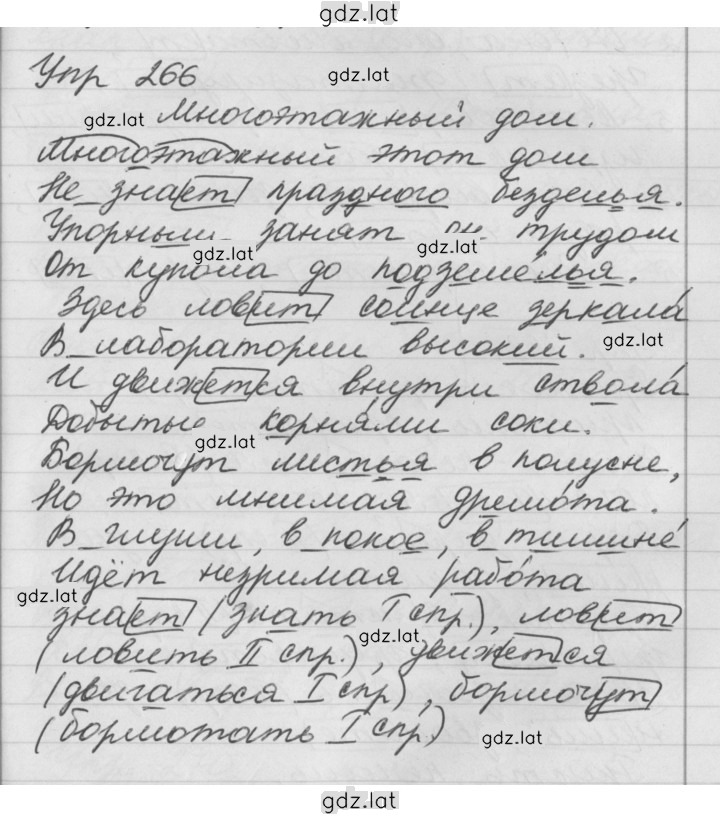 gdz.lat
Упр 266
gdz.lat
gdz.lat
Многоэтажный дом.
Многоэтажный этот дом
Не знает праздного безделья.
Упорным занят он трудом
gdz.lat
gdz.lat
От купола до подземе́лья.
Здесь ловит солнце зеркала́
gdz.lat
В лаборатории высокий.
И движется внутри ствола́
Добытые корня́ми соки.
gdz.lat
Бормочут листья в полусне,
Но это мнимая дремо́та.
В глуши, в покое, в тишине́
Идёт незримая рабо́та
gdz.lat
знает (знать I спр.), ловит
gdz.lat
(ловить II спр.), движется
(двигаться I спр), бормочут
(бормотать I спр)
gdz.lat
gdz.lat